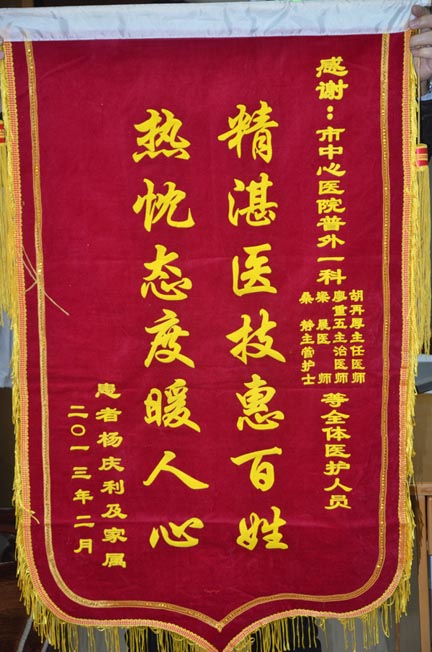 感谢：市中心医院普外一科
胡再厚主任医师
廖重五主治医师
梁晨医师
桑静主管护士
等全体医护人员
精湛医技惠百姓
热忱态度暖人心
患者杨庆利及家属
二〇一三年二月